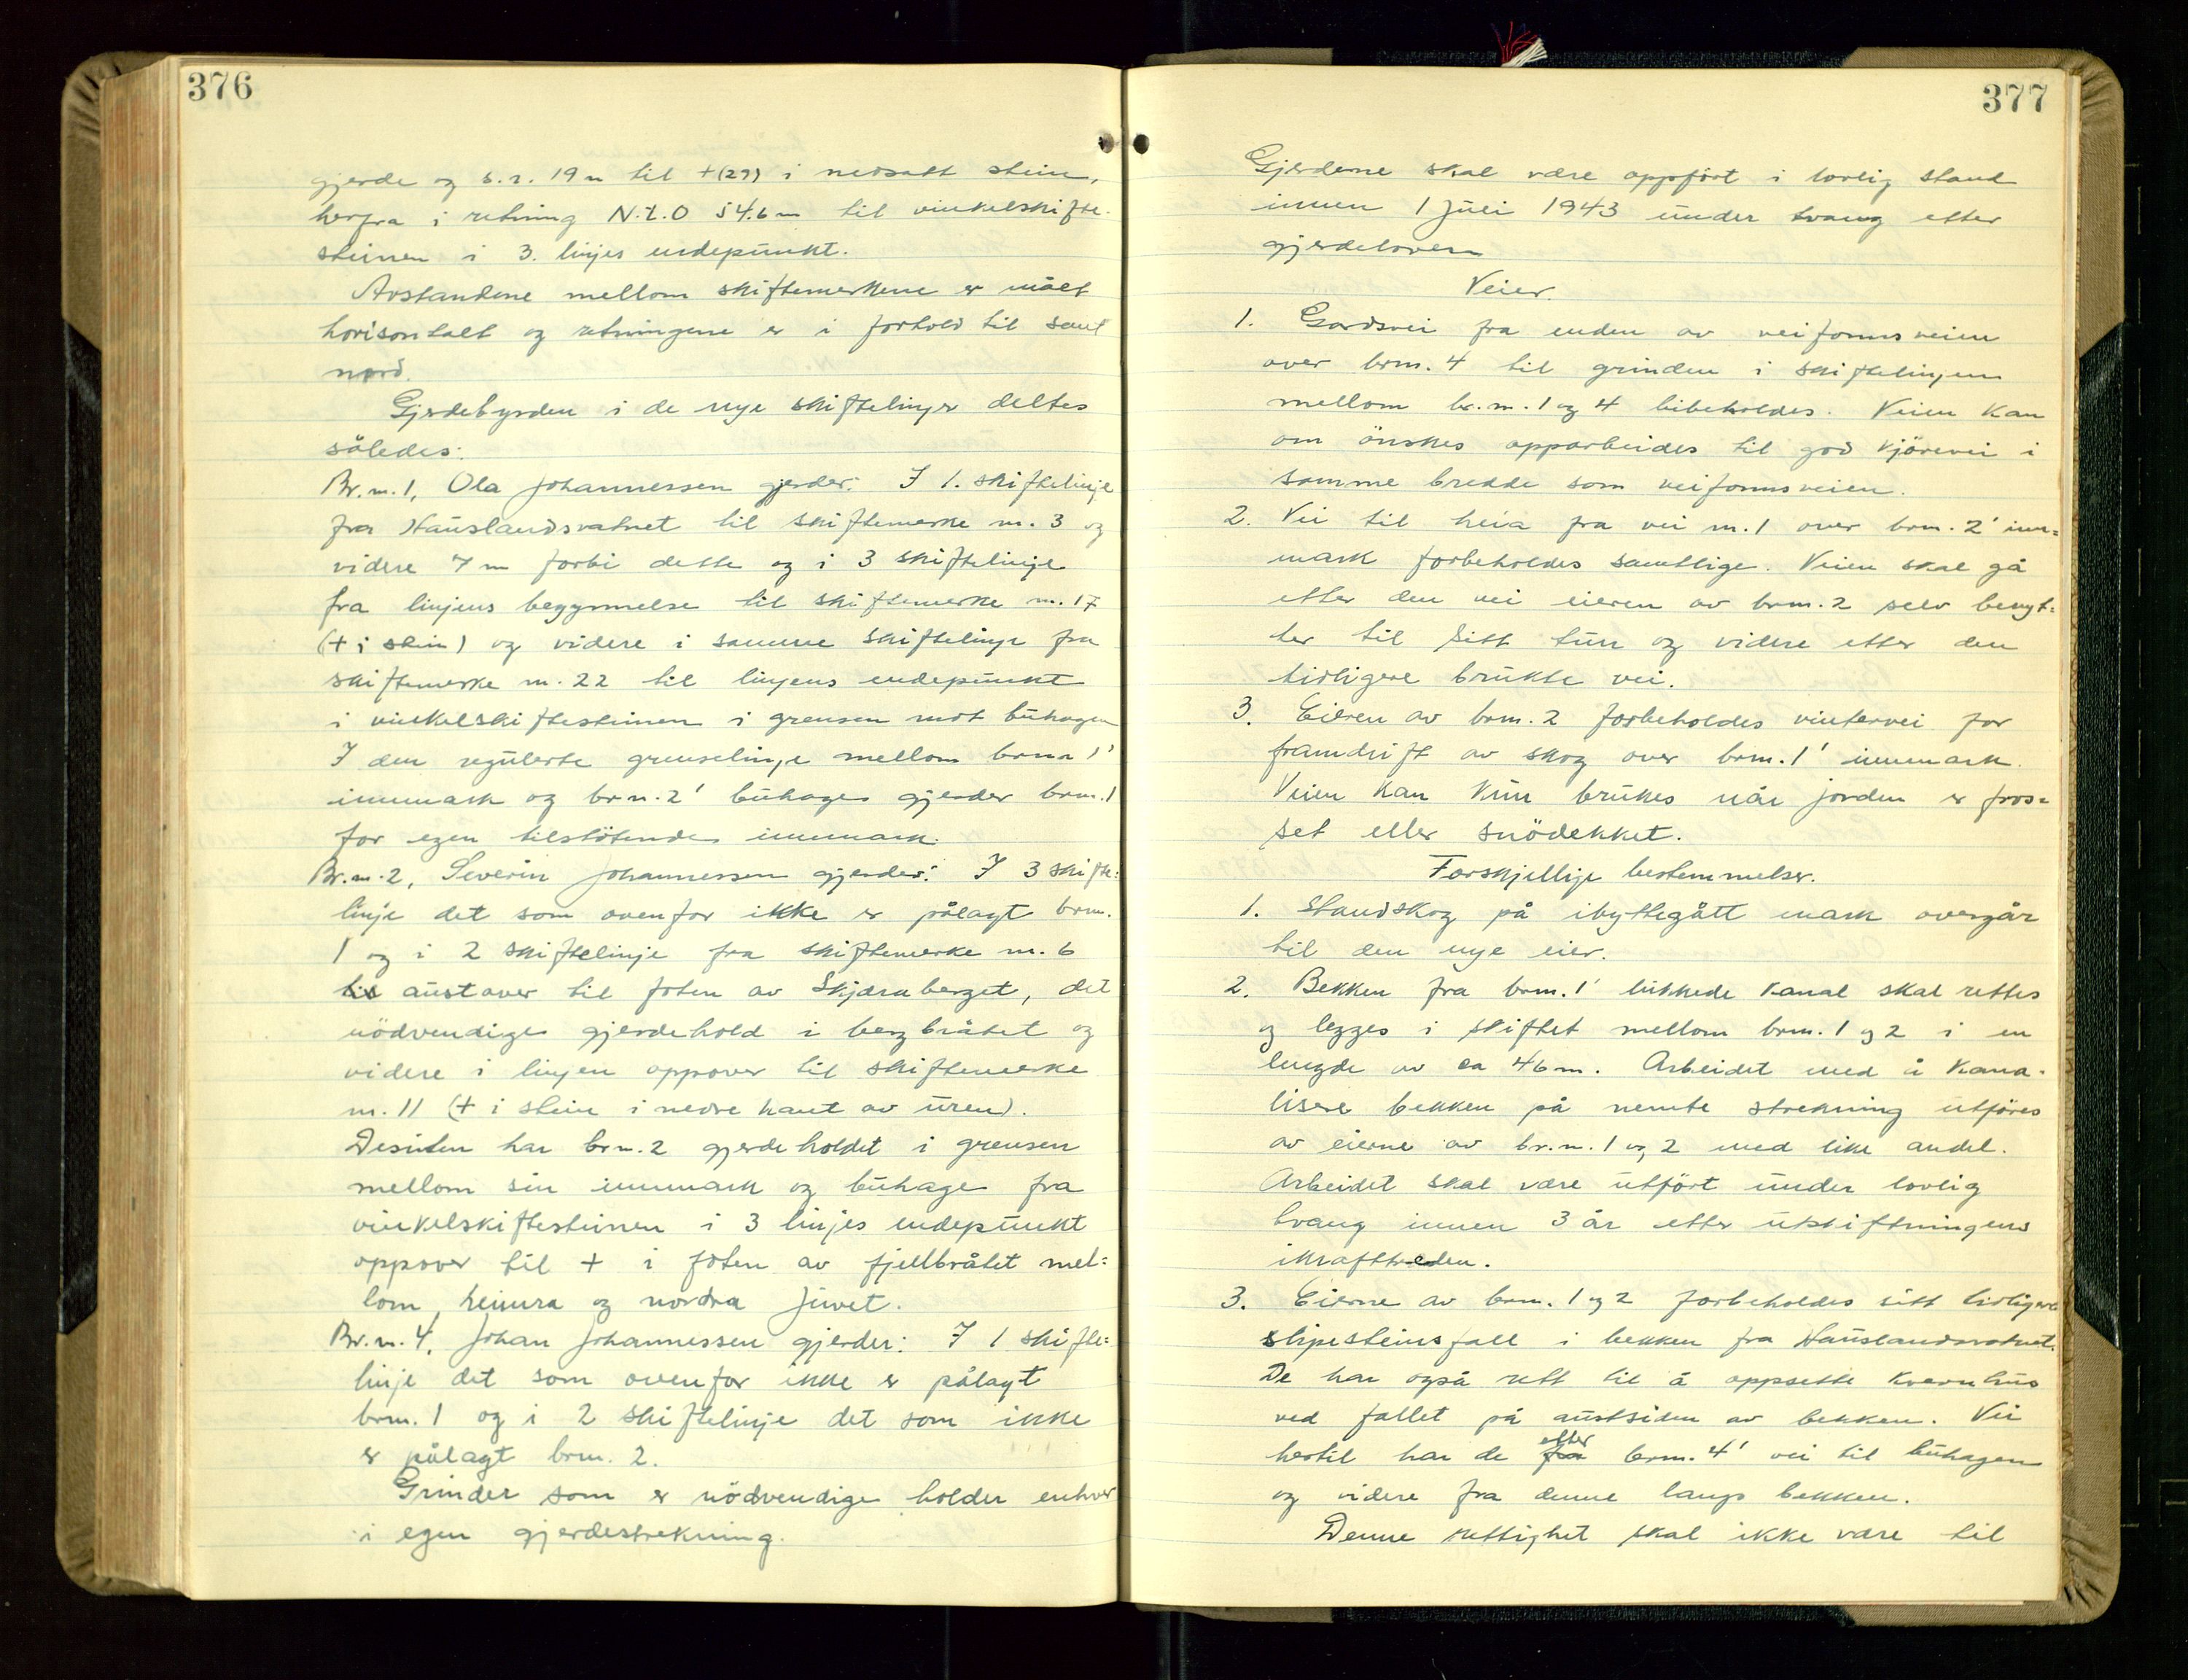 376
gjerde og s.r. 19 m til +(27) i nedsatt stein,
herfra i retning N.t.O 54.6 m til vinkelskifte-
steinen i 3. linjes endepunkt.
Avstandene mellom skiftemerkene er målt
horisontalt og retningene er i forhold til sant
nord.
Gjerdebyrden i de nye skiftelinjer deltes
således:
Br.nr. 1, Ola Johannessen gjerder: I 1. skiftelinje
fra Hauslandsvatnet til skiftemerke nr. 3 og
videre 7 m forbi dette og i 3 skiftelinje
fra linjens begynnelse til skiftemerke nr. 17
(+ i stein) og videre i samme skiftelinje fra
skiftemerke nr. 22 til linjens endepunkt
i vinkelskiftesteinen i grensen mot buhagen
I den regulerte grenselinje mellom brnr 1'
innmark og br.nr. 2' buhage gjerder brnr. 1
for egen tilstötende innmark.
Br.nr. 2, Severin Johannessen gjerder: I 3 skifte=
linje det som ovenfor ikke er pålagt brnr.
1 og i 2 skiftelinje fra skiftemerke nr. 6
til austover til foten av Skjæraberget, det
nödvendige gjerdehold i bergbråtet og
videre i linjen oppover til skiftemerke
nr. 11 (+ i stein i nedre kant av uren).
Desuten har brnr. 2 gjerdeholdet i grensen
mellom sin innmark og buhage fra
vinkelskiftesteinen i 3 linjes endepunkt
oppover til + i foten av fjellbråtet mel=
lom heiura og nordra juvet.
Br.nr. 4, Johan Johannessen gjerder: I 1 skifte=
linje det som ovenfor ikke er pålagt
brnr. 1 og i 2 skiftelinje det som ikke
er pålagt brnr. 2.
Grinder som er nödvendige holder enhver
i egen gjerdestrekning.
377
Gjerdene skal være oppfört i lovlig stand
innen 1 Juli 1943 under tvang etter
gjerdeloven
Veier.
1. Gardsvei fra enden av veifonnsveien
over brnr. 4 til grinden i skiftelinjen
mellom br.nr. 1 og 4 bibeholdes. Veien kan
om önskes opparbeides til god kjörevei i
samme bredde som veifonnsveien.
2. Vei til heia fra vei nr. 1 over brnr. 2' inn=
mark forbeholdes samtlige. Veien skal gå
etter den vei eieren av brnr. 2 selv benyt=
ter til sitt tun og videre etter den
tidligere brukte vei.
3. Eieren av brnr. 2 forbeholdes vintervei for
framdrift av skog over brnr. 1' innmark.
Veien kan kun brukes når jorden er fros=
set eller snödekket.
Forskjellige bestemmelser.
1. Standskog på ibyttegått mark overgår
til den nye eier.
2. Bekken fra brnr. 1' lukkede kanal skal rettes
og legges i skiftet mellom brnr. 1 og 2 i en
lengde av ca 46 m. Arbeidet med å kana-
lisere bekken på nemte strekning utföres
av eierne av br.nr. 1 og 2 med like andel.
Arbeidet skal være utfört under lovlig
tvang innen 3 år etter utskiftningens
ikrafttreden.
3. Eierne av brnr. 1 og 2 forbeholdes sitt tidligere
slipesteinsfall i bekken fra Hauslandsvatnet.
De har også rett til å oppsette kvernhus
ved fallet på austsiden av bekken. Vei
hertil har de fra etter brnr. 4' vei til buhagen
og videre fra denne langs bekken.
Denne rettighet skal ikke være til